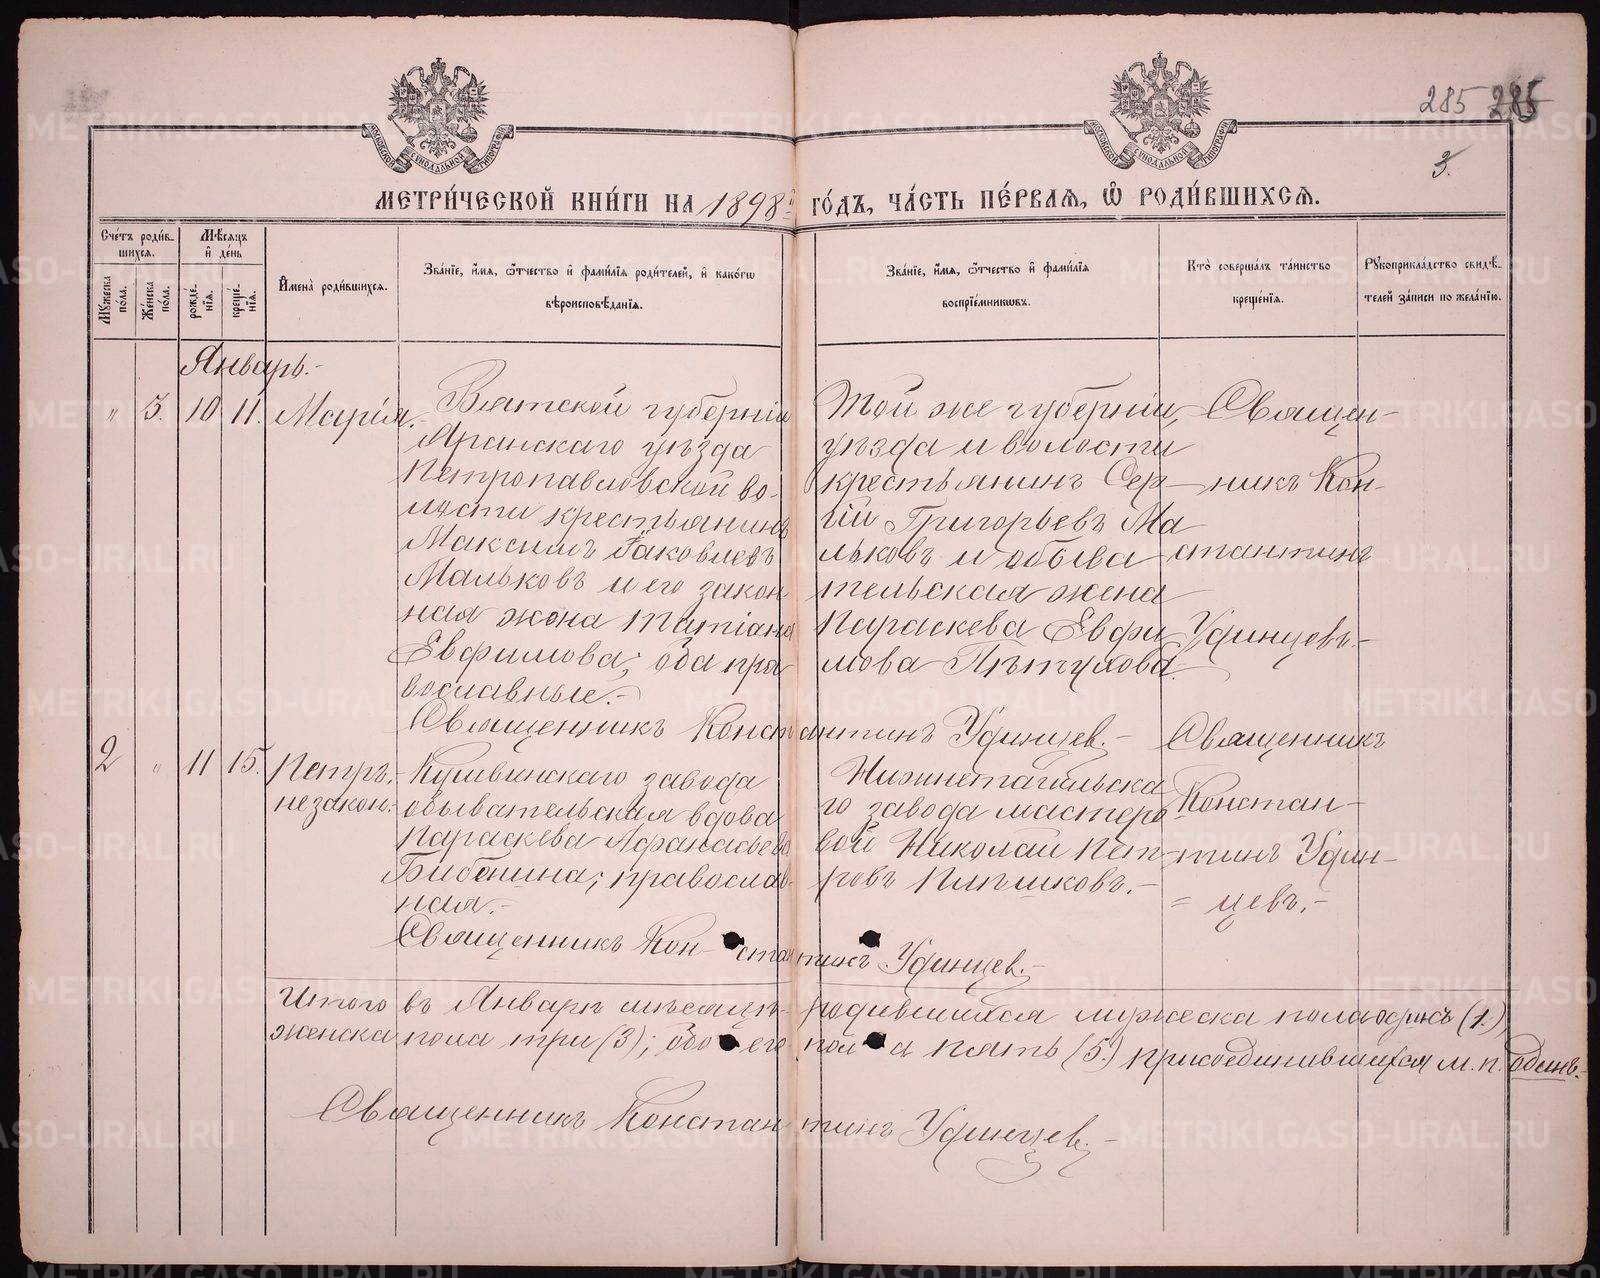 285 285
3.
МЕТРИ́ЧЕСКОЙ КНИ́ГИ НА 1898й ГО́ДЪ, ЧА́СТЬ ПЕ́РВАЯ, Ѡ РОДИ́ВШИХСЯ.
Сче́тъ роди́в-
шихся.
Мꙋжеска
пола.
Же́нска
по́ла.
Мѣ́сяцъ
и҆ де́нь
рожде́-
нїя.
креще́-
нїя.
И҆мена̀ роди́вшихся.
Зва́нїе, и҆́мя, ѻ҆́тчество и҆ фами́лїя роди́телей, и҆ како́гѡ
вѣроисповѣ́данїя.
Зва́нїе, и҆́мя, ѻ҆́тчество и҆ фами́лїя
воспрїе́мниковъ.
Кто̀ соверша́лъ та́инство
креще́нїя.
Рꙋкоприкла́дство свидѣ́-
телей за́писи по жела́нїю.
Январь.-
" 3. 10 11. Марія.-
Вятской губерніи
Яранскаго уѣзда
Петропавловской во-
лости крестьянинъ
Максимъ Іаковлевъ
Мальковъ и его закон
ная жена Татіана
Евфимова; оба пра
вославные.-
Той же губерніи,
уѣзда и волости
крестьянинъ Сер
гій Григорьевъ Ма
льковъ и обыва
тельская жена
Параскева Евфи
мова Пѣтухова.
Священ-
никъ Кон-
стантинъ
Удинцевъ.-
Священникъ Константинъ Удинцев.-
2 " 11 15. Петръ,-
незакон.-
Кушвинскаго завода
обывательская вдова
Параскева Афанасьева
Бибенина; православ-
ная.-
Нижнетагильска
го завода мастеро
вой Николай Пет-
ровъ Пляшковъ.-
Священникъ
Констан-
тинъ Удин-
= цевъ.-
Священникъ Кон-стантинъ Удинцев.-
Итого въ Январѣ мѣсяцѣ родившихся мужеска пола одинъ (1.)
женска пола три (3); обоего пола пять (5.) присоединившихся м. п. одинъ.-
Священникъ Константинъ Удинцев.-
METRIKI.GASO-URAL.RU